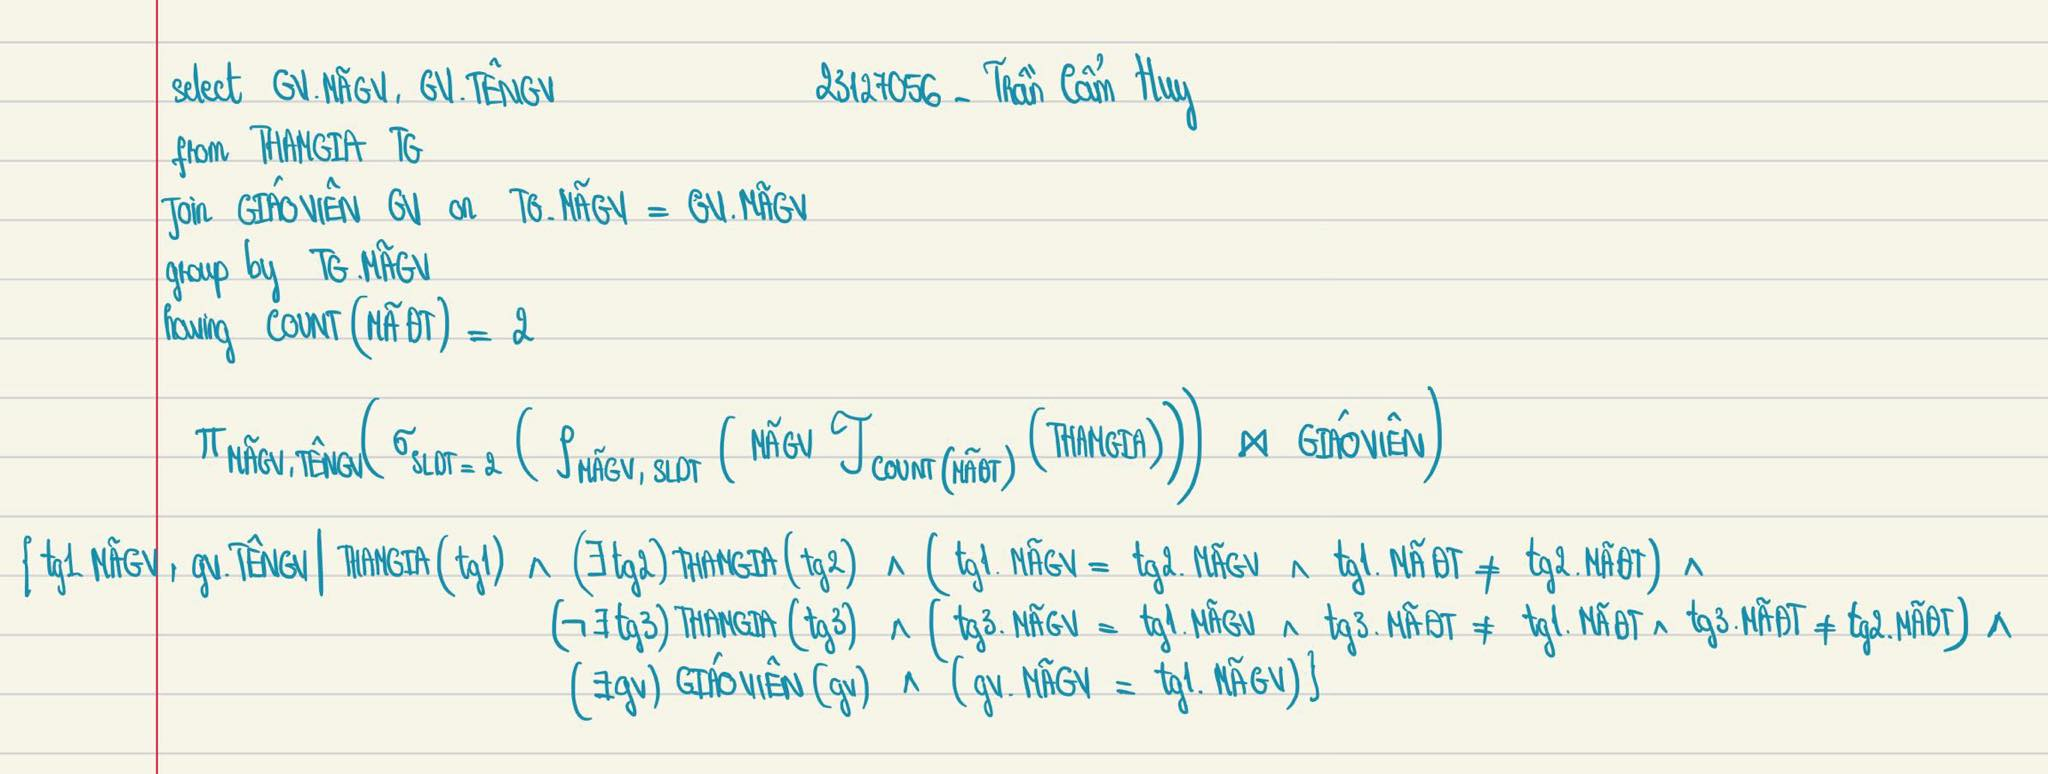 select GV.MÃGV, GV.TÊNGV 23127056 - Trần Cẩm Huy
from THAMGIA TG
Join GIÁOVIÊN GV on TG.MÃGV = GV.MÃGV
group by TG.MÃGV
having COUNT(MÃĐT) = 2
π MÃGV,TÊNGV (σ SLDT=2 (ρ MÃGV, SLDT (MÃGV ℑ COUNT(MÃĐT) (THAMGIA))) ⋈ GIÁOVIÊN)
{tg1 MÃGV, gv.TÊNGV | THAMGIA(tg1) ∧ (∃tg2) THAMGIA(tg2) ∧ (tg1.MÃGV = tg2.MÃGV ∧ tg1.MÃĐT ≠ tg2.MÃĐT) ∧
(¬∃tg3) THAMGIA(tg3) ∧ (tg3.MÃGV = tg1.MÃGV ∧ tg3.MÃĐT ≠ tg1.MÃĐT ∧ tg3.MÃĐT ≠ tg2.MÃĐT) ∧
(∃gv) GIÁOVIÊN(gv) ∧ (gv.MÃGV = tg1.MÃGV)}